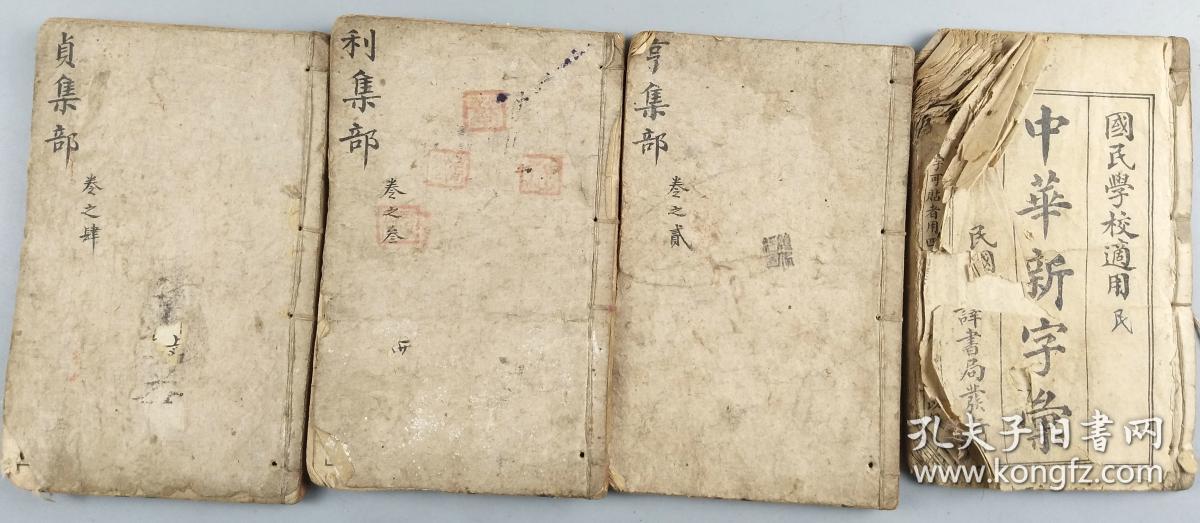 國民學校適用 民
中華新字彙
民國
辭書局發
亨集部
卷之貳
利集部
卷之叁
冊
貞集部
卷之肆
孔夫子旧书网
www.kongfz.com